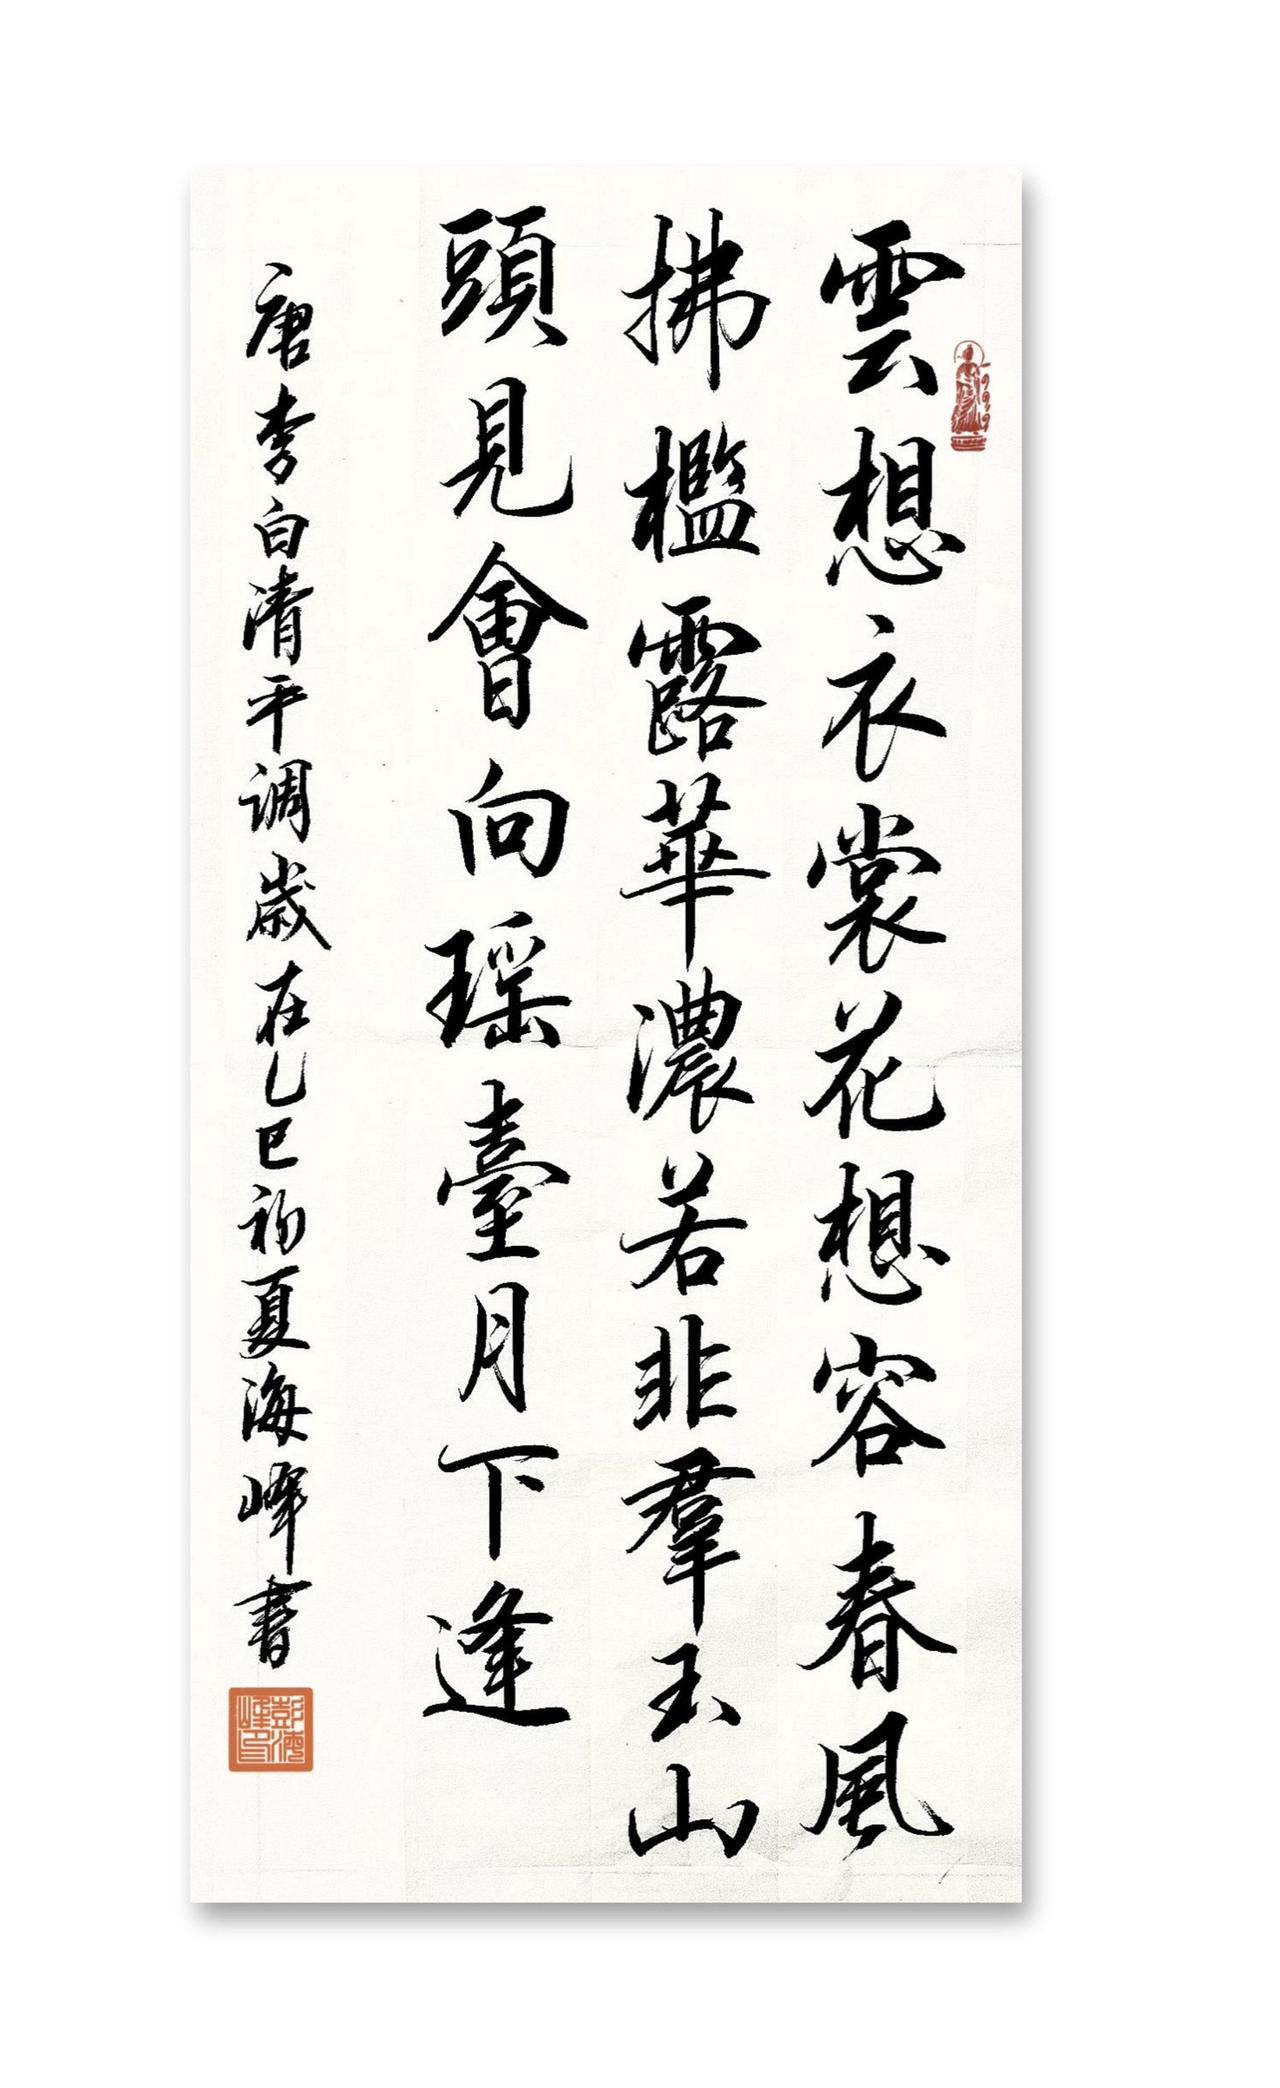 雲想衣裳花想容春風
拂檻露華濃若非羣玉山
頭見會向瑶臺月下逢
唐李白清平调歲在乙巳初夏海峰書
彭海峰印